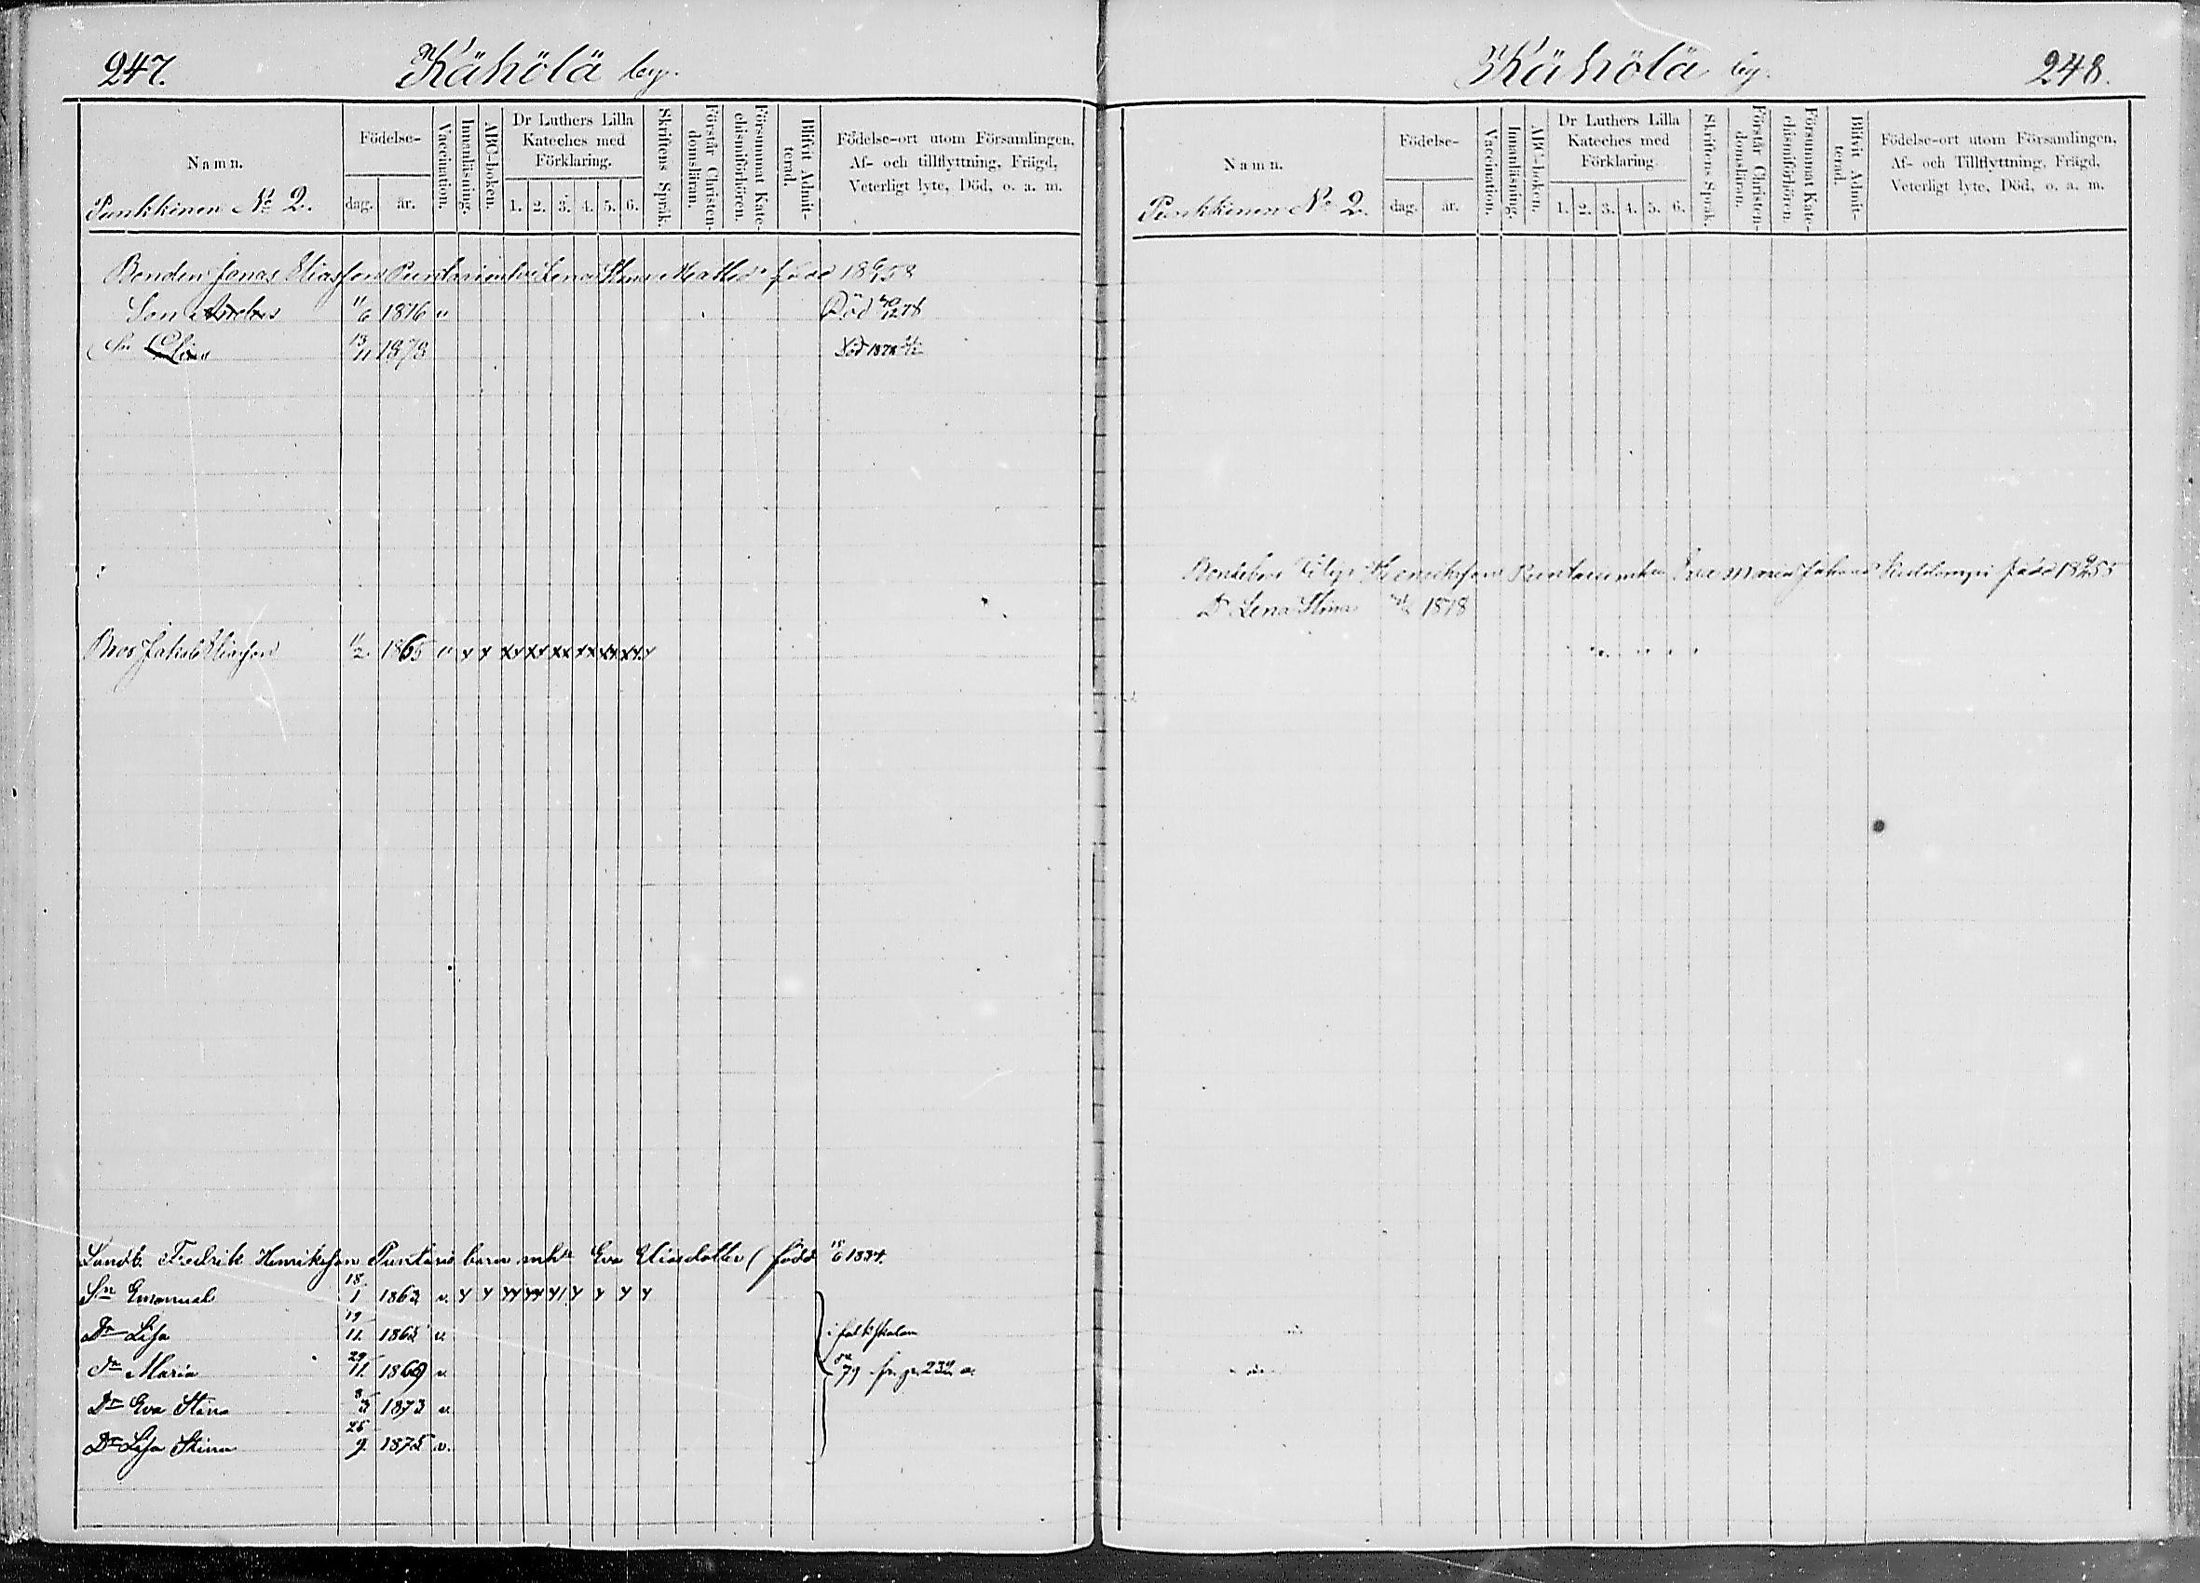 247. Kähölä by.
Namn.
Punkkinen № 2.
Födelse-
dag. år.
Vaccination.
Innanläsning.
ABC-boken.
Dr Luthers Lilla Kateches med Förklaring.
1. 2. 3. 4. 5. 6.
Skriftens Språk.
Förstår Christendomsläran.
Försummat Katechismiförhören.
Blifvit Admitterad.
Födelse-ort utom Församlingen,
Af- och tillflyttning, Frägd,
Veterligt lyte, Död, o. a. m.
Bonden Jonas Eliasson Puntari mhu Lena Stina Matts född
Son 11/6 1876 " Död
Sn Elias 13/11 1878 Död 1878
Bror Jakob Eliasson 11/2 1865 "
Landb. Fredrik Henriksson Puntaris barn mhu Eva Eliasdotter (född 15/6 1834.
Sn Emanuel 18/1 1862 v.
Dr Lisa 19/11 1865 v. i folkskolan
Dr Maria 29/11 1869 v. 79 fr. p. 232
Dr Eva Stina 3/3 1873 v.
Dr Lisa Stina 26/9 1875 v.
Kähölä by. 248.
Namn.
Punkkinen № 2.
Födelse-
dag. år.
Vaccination.
Innanläsning.
ABC-boken.
Dr Luthers Lilla Kateches med Förklaring
1. 2. 3. 4. 5. 6.
Skriftens Språk.
Förstår Christendomsläran.
Försummat Katechismiförhören.
Blifvit Admitterad.
Födelse-ort utom Församlingen,
Af- och Tillflyttning, Frägd,
Veterligt lyte, Död, o. a. m.
Henriksson Puntari mhu Eva Maria född
D. Lena Stina 1878